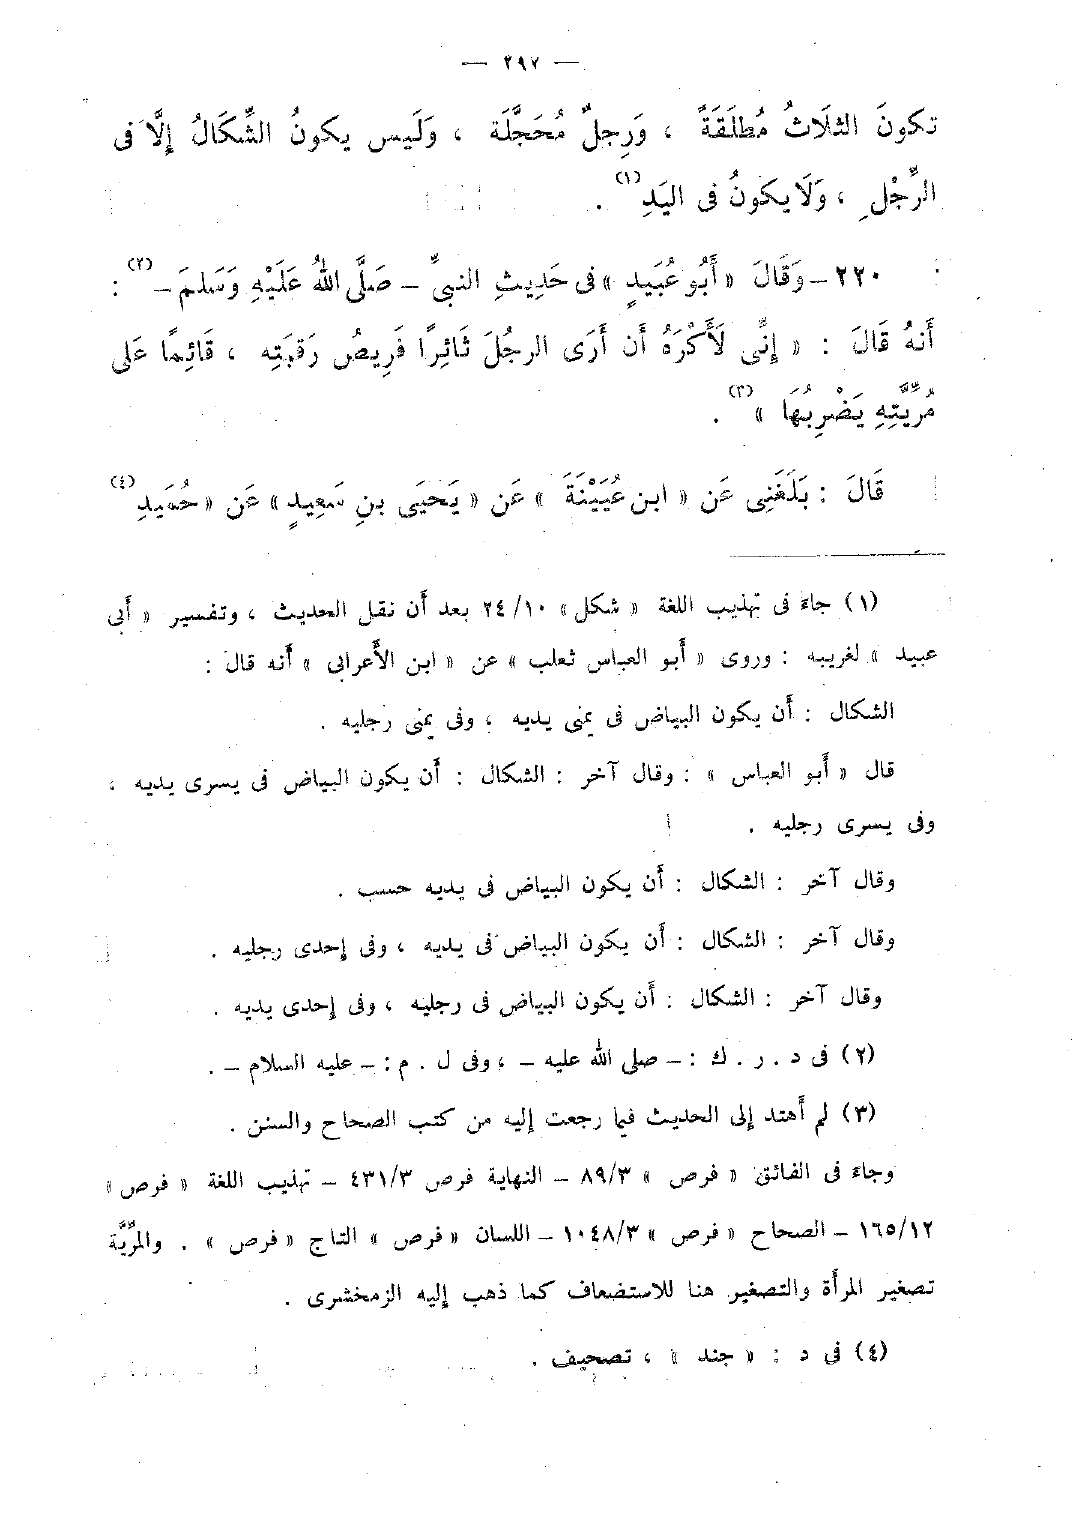 — ٢٩٧ —
تكونَ الثلَاثُ مُطلَقَةً ، وَرِجلٌ مُحَجَّلَة ، وَلَيس يكونُ الشِّكَالُ إلَّا فى
الرِّجْلِ ، وَلَا يكونُ فى اليَدِ (١) .
٢٢٠ – وَقَالَ « أَبُو عُبَيدٍ » فى حَدِيثِ النبىِّ – صَلَّى اللهُ عَلَيْهِ وَسَلمَ – (٢) :
أَنهُ قَالَ : « إِنِّى لَأَكْرَهُ أن أرَى الرجُلَ ثَائِرًا فَرِيصُ رَقبَتِه ، قَائِمًا عَلى
مُرَيَّتِهِ يَضْرِبُهَا » (٣) .
قَالَ : بَلَغَنِى عَن « ابن عُيَيْنَةَ » عَن « يَحيَى بنِ سَعِيدٍ » عَن « حُمَيدِ (٤)
(١) جاءَ فى تهذيب اللغة « شكل » ١٠/ ٢٤ بعد أن نقل الحديث ، وتفسير « أبى
عبيد » لغريبه : وروى « أبو العباس ثعلب » عن « ابن الأعرابى » أنه قال :
الشكال : أن يكون البياض فى يمنى يديه ، وفى يمنى رجليه .
قال « أبو العباس » : وقال آخر : الشكال : أن يكون البياض فى يسرى يديه ،
وفى يسرى رجليه .
وقال آخر : الشكال : أن يكون البياض فى يديه حسب .
وقال آخر : الشكال : أن يكون البياض فى يديه ، وفى إحدى رجليه .
وقال آخر : الشكال : أن يكون البياض فى رجليه ، وفى إحدى يديه .
(٢) فى د . ر . ك : – صلى الله عليه – ، وفى ل . م : – عليه السلام – .
(٣) لم أهتد إلى الحديث فيما رجعت إليه من كتب الصحاح والسنن .
وجاءَ فى الفائق « فرص » ٨٩/٣ – النهاية فرص ٤٣١/٣ – تهذيب اللغة « فرص »
١٦٥/١٢ – الصحاح « فرص » ١٠٤٨/٣ – اللسان « فرص » التاج « فرص » . والمُرَيَّة
تصغير المرأة والتصغير هنا للاستضعاف كما ذهب إليه الزمخشرى .
(٤) فى د : « جند » ، تصحيف .